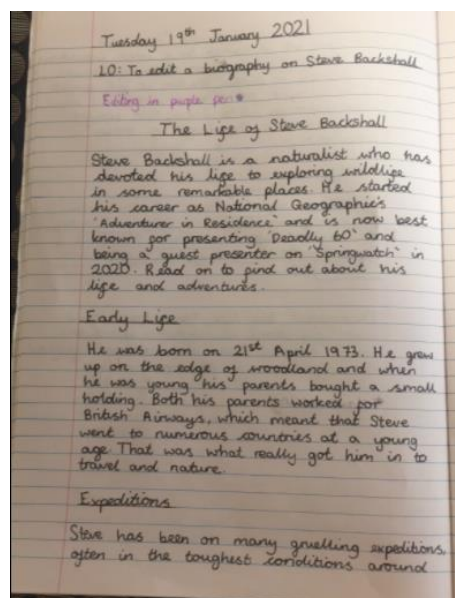 Tuesday 19th January 2021
LO: To edit a biography on Steve Backshall
Editing in purple pen
The Life of Steve Backshall
Steve Backshall is a naturalist who has
devoted his life to exploring wildlife
in some remarkable places. He started
his career as National Geographic's
'Adventurer in Residence' and is now best
known for presenting 'Deadly 60' and
being a guest presenter on 'Springwatch' in
2020. Read on to find out about his
life and adventures.
Early Life
He was born on 21st April 1973. He grew
up on the edge of woodland and when
he was young his parents bought a small
holding. Both his parents worked for
British Airways, which meant that Steve
went to numerous countries at a young
age. That was what really got him in to
travel and nature.
Expeditions
Steve has been on many gruelling expeditions,
often in the toughest conditions around